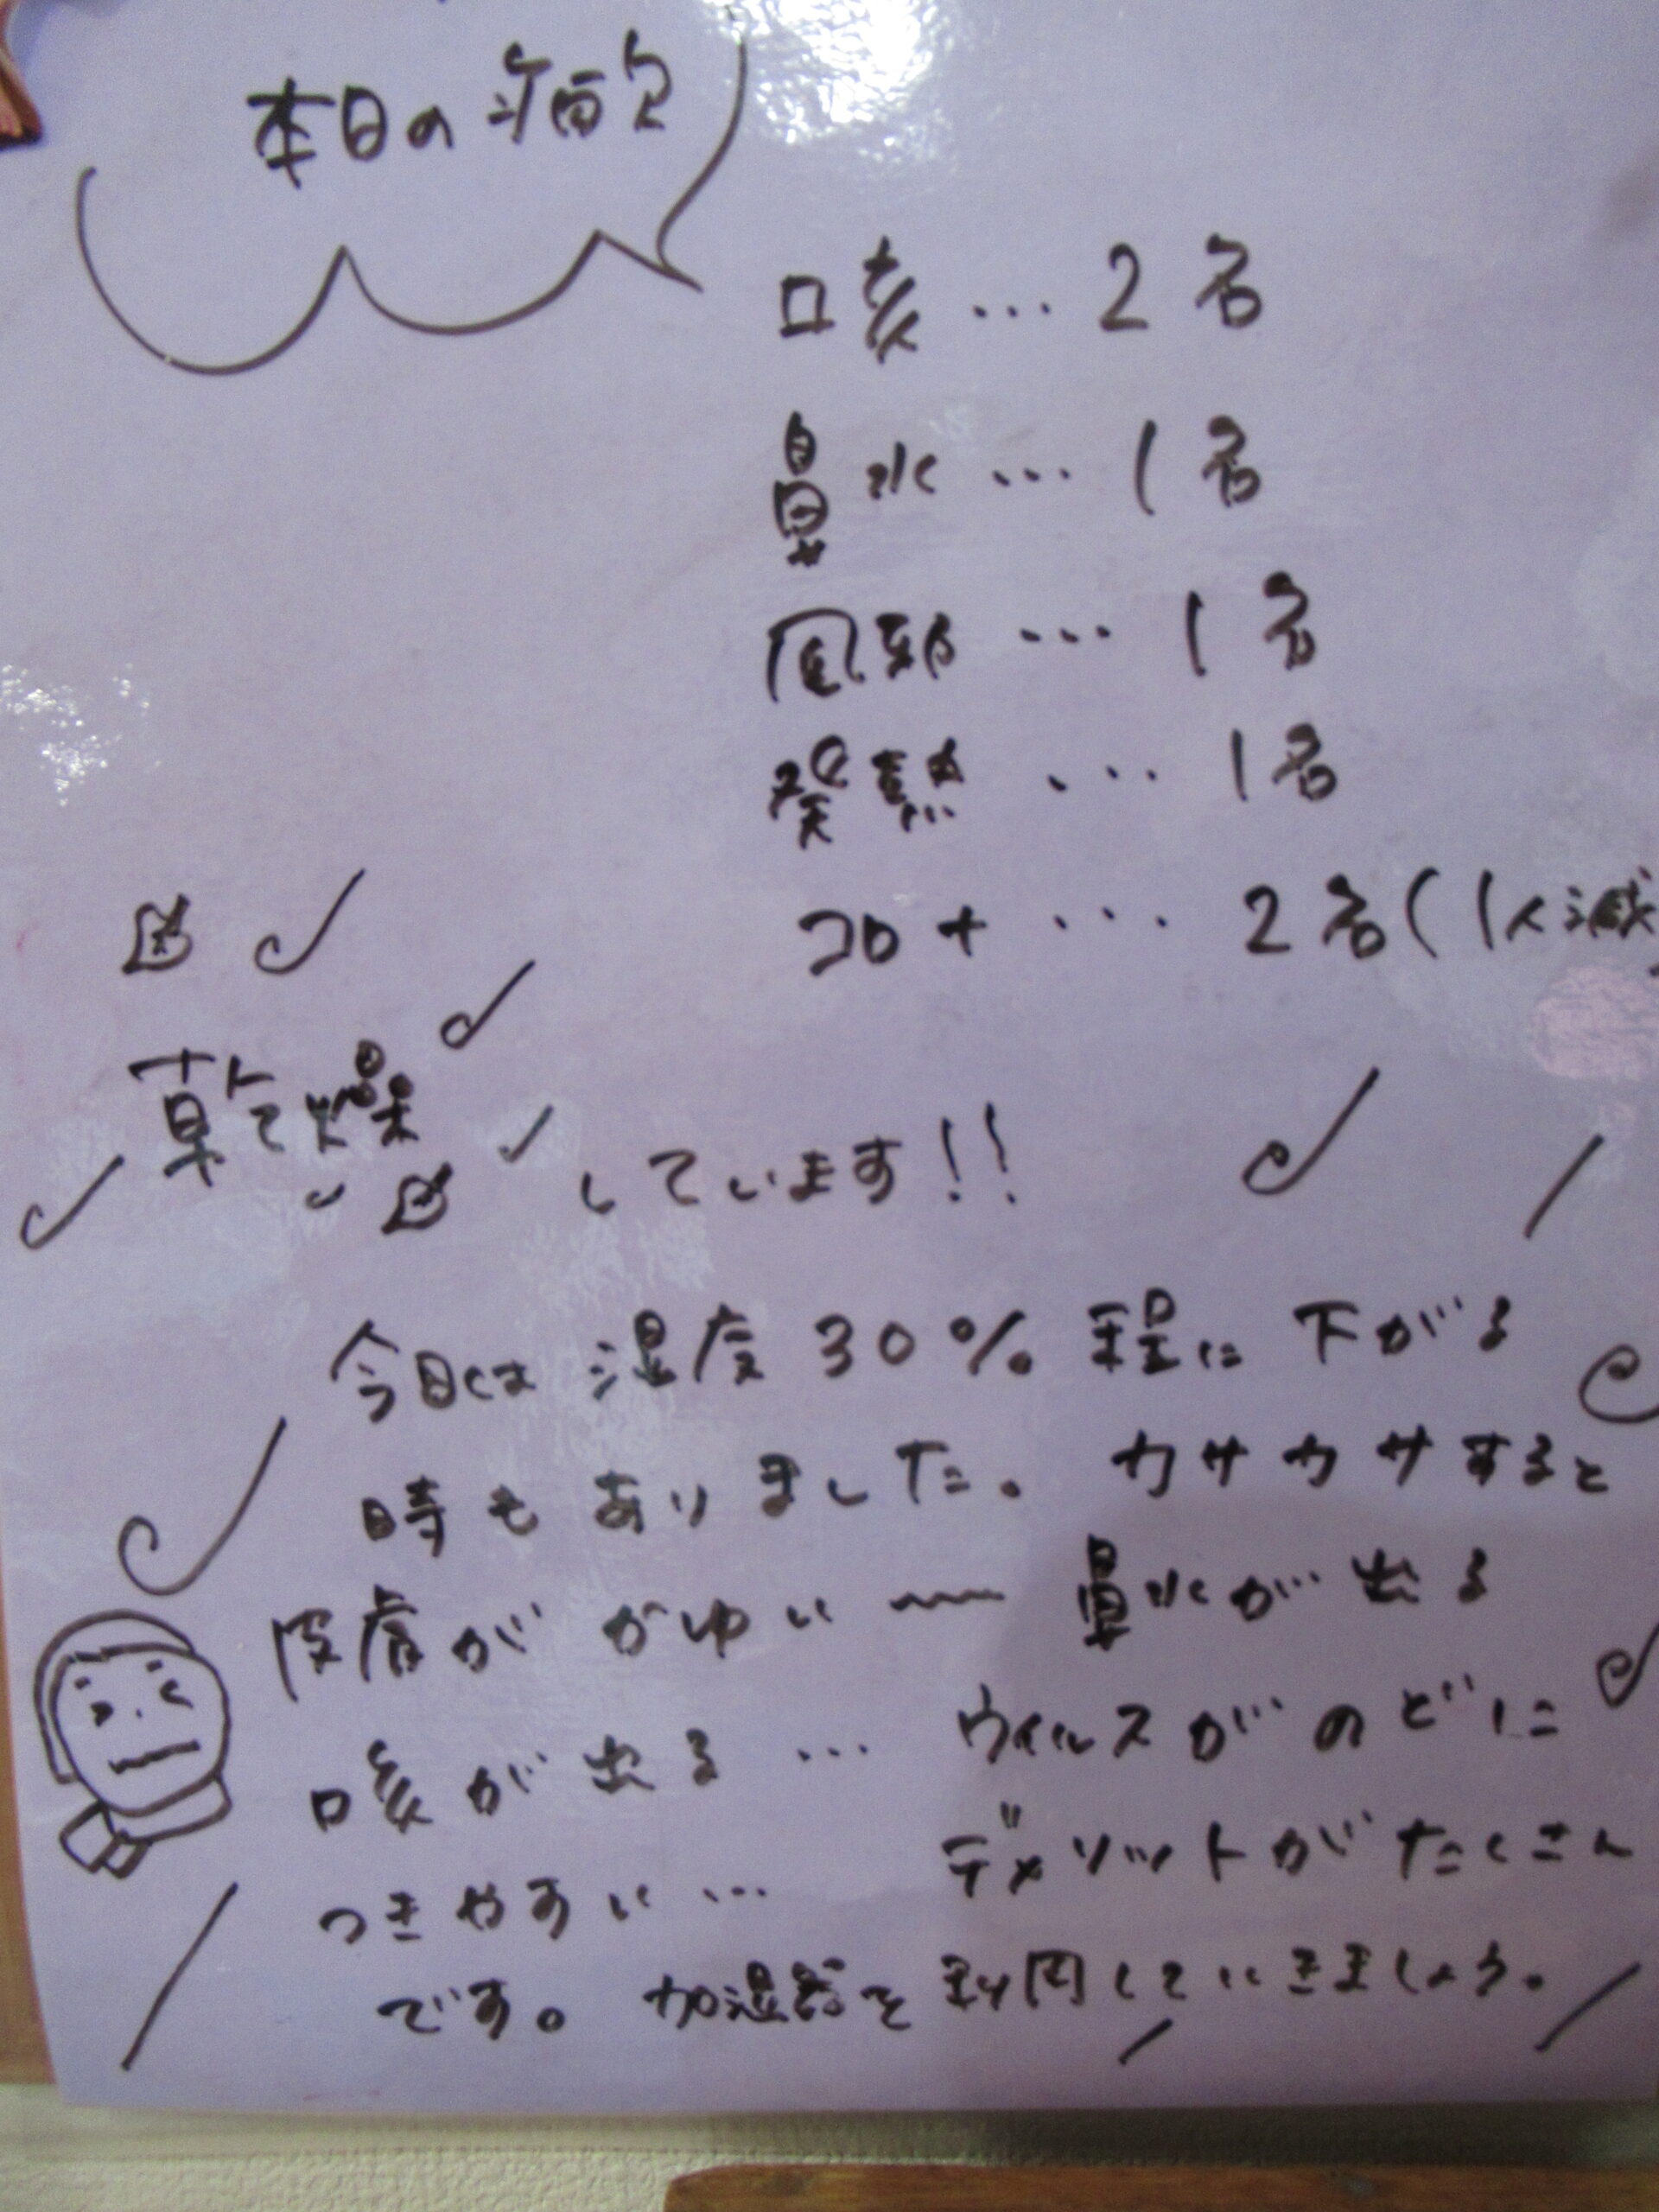 本日の病欠
咳…2名
鼻水…1名
風邪…1名
発熱…1名
コロナ…2名(1人減)
乾燥
しています!!
今日は湿度30%程に下がる
時もありました。カサカサすると
皮膚がかゆい〜鼻水が出る
咳が出る…ウイルスがのどに
つきやすい…デメリットがたくさん
です。加湿器を利用していきましょう。